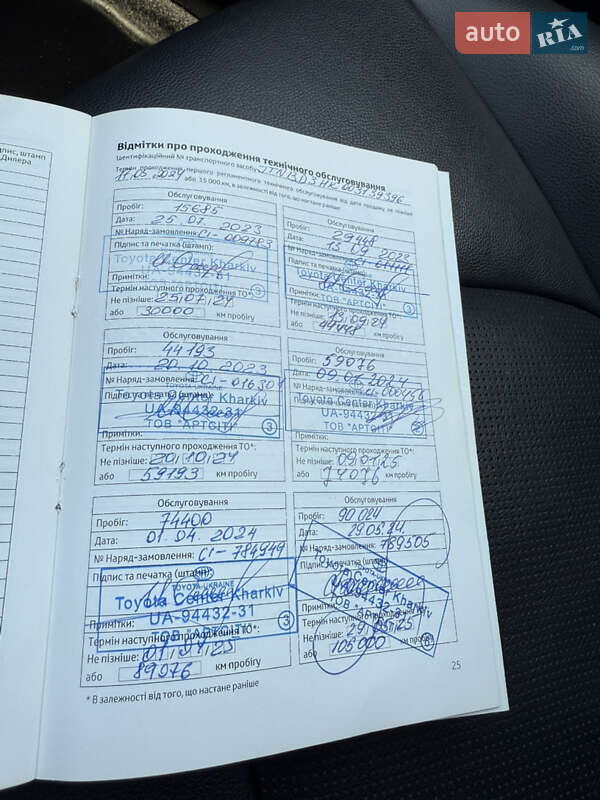 auto RIA .com
пис, штамп
Дилера
Відмітки про проходження технічного обслуговування
Ідентифікаційний № транспортного засобу
Термін проходження першого регламентного технічного обслуговування від дати продажу не пізніше
11.05.2024 або 15 000 км, в залежності від того, що настане раніше
Обслуговування
Пробіг: 15685
Дата: 25.07.2023
№ Наряд-замовлення: СІ-009283
Підпис та печатка (штамп):
Toyota Center Kharkiv
UA-94432-31
3
Примітки:
Термін наступного проходження ТО*:
Не пізніше: 25.07.24
або 30000 км пробігу
Обслуговування
Пробіг: 29448
Дата: 13.09.2023
№ Наряд-замовлення:
Підпис та печатка (штамп):
Toyota Center Kharkiv
ТОВ "АРТСІТІ"
3
Примітки:
Термін наступного проходження ТО*:
Не пізніше: 13.09.24
або 44448 км пробігу
Обслуговування
Пробіг: 44193
Дата: 20.10.2023
№ Наряд-замовлення: СІ-016304
Підпис та печатка (штамп):
Toyota Center Kharkiv
UA-94432-31
ТОВ "АРТСІТІ"
3
Примітки:
Термін наступного проходження ТО*:
Не пізніше: 20.10.24
або 59193 км пробігу
Обслуговування
Пробіг: 59076
Дата: 09.01.2024
№ Наряд-замовлення: СІ-000458
Toyota Center Kharkiv
UA-94432-31
ТОВ "АРТСІТІ"
Примітки:
Термін наступного проходження ТО*:
Не пізніше: 09.01.25
або 74076 км пробігу
Обслуговування
Пробіг: 74400
Дата: 01.04.2024
№ Наряд-замовлення: СІ-784949
Підпис та печатка (штамп):
TOYOTA-UKRAINE
Toyota Center Kharkiv
UA-94432-31
3
Примітки:
Термін наступного проходження ТО*:
Не пізніше: 01.04.25
або 89076 км пробігу
Обслуговування
Пробіг: 90024
Дата: 29.05.24
№ Наряд-замовлення: 789505
Підпис та печатка (штамп):
Примітки:
Термін наступного проходження ТО*:
Не пізніше: 29.05.25
або 105000 км пробігу
* В залежності від того, що настане раніше
25